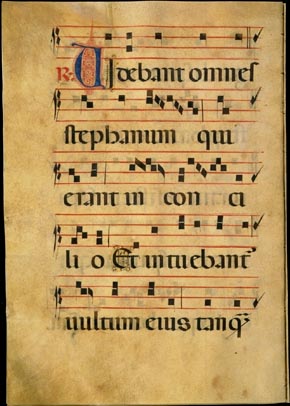 R. Uidebant omnes
stephanum qui
erant in con ci
li o Et intuebant᷑
uultum eius tanqȝ